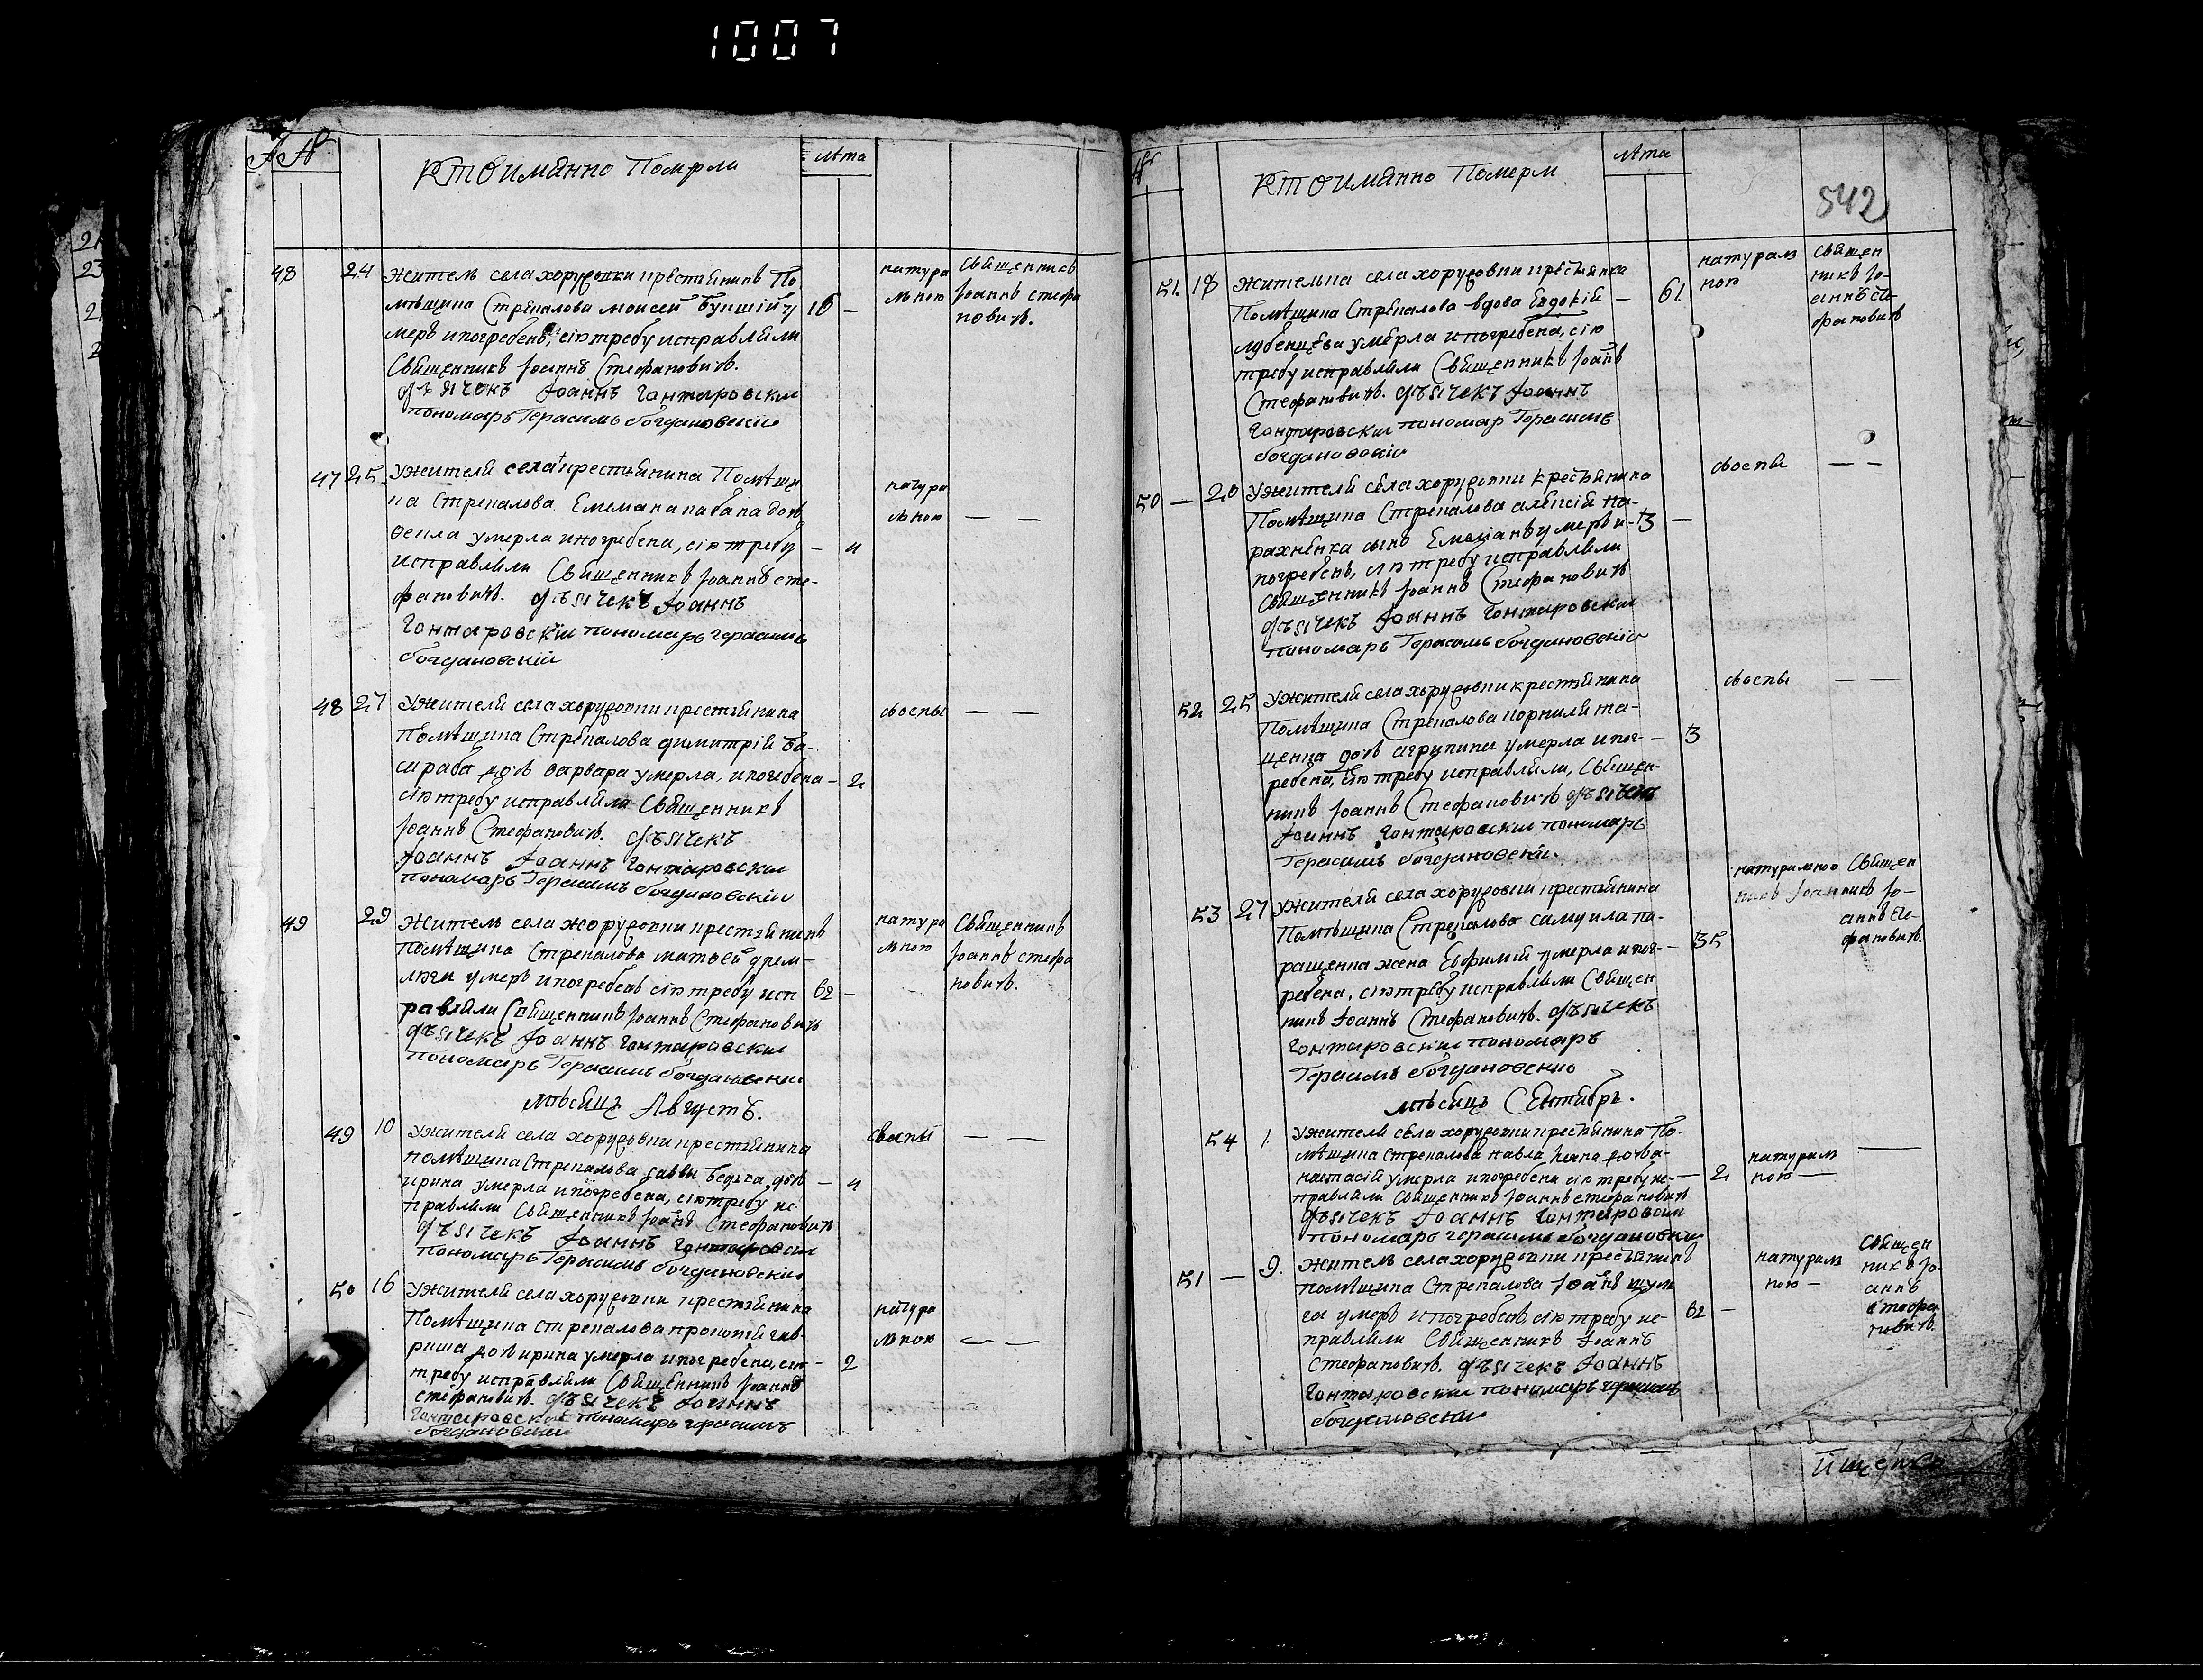 1007
Кто имянно Померли
лѣта
48 24 Житель села хоруговки крестянинъ По
мѣщика Стрепалова Моисей 16 —
меръ и погребенъ, сію требу исправляли
Священникъ Іоаннъ Стефановичъ.
дьячекъ Іоаннъ Гонтаровскій
пономаръ Герасимъ Богдановскій
натура
лною
Священникъ
Іоаннъ Стефа
новичъ.
47 25 Ужителя села крестянина Помѣщи
ка Стрепалова Емелиана дочь
Фекла умерла и погребена, сію требу — 4
исправляли Священникъ Іоаннъ Сте-
фановичъ. дьячекъ Іоаннъ
Гонтаровскій пономаръ Герасимъ
Богдановскій
натура
лною — —
48 27 Ужителя села хоруговки крестянина
Помѣщика Стрепалова Димитрія Ба-
сараба дочь Варвара умерла, и погребена — 2
сію требу исправляли Священникъ
Іоаннъ Стефановичъ. дьячекъ
Іоаннъ Іоаннъ Гонтаровскій
пономаръ Герасимъ Богдановскій
своспы — —
49 29 Житель села хоруговки крестянинъ
помѣщика Стрепалова Матвей Дрем-
люги умеръ и погребенъ сію требу исп 62 —
равляли Священникъ Іоаннъ Стефановичъ
дьячекъ Іоаннъ Гонтаровскій
пономаръ Герасимъ Богдановскій
натура
лною
Священникъ
Іоаннъ Стефа
новичъ.
мѣсяцъ Августъ.
49 10 Ужителя села хоруговки крестянина
помѣщика Стрепалова Саввы дочь — 4
ирина умерла и погребена, сію требу ис
правляли Священникъ Іоаннъ Стефановичъ
дьячекъ Іоаннъ Гонтаровскій
пономаръ Герасимъ Богдановскій
своспы — —
50 16 Ужителя села хоруговки крестянина
Помѣщика Стрепалова прокопія гав-
риша дочь ирина умерла и погребена, сію — 2
требу исправляли Священникъ Іоаннъ
Стефановичъ. дьячекъ Іоаннъ
Гонтаровскій пономаръ Герасимъ
Богдановскій
натура
лною — —
Кто имянно Померли
лѣта
542
51. 18 Жителька села хоруговки крестянка
Помѣщика Стрепалова вдова Евдокія — 61.
лубенцева умерла и погребена, сію
требу исправляли Священникъ Іоаннъ
Стефановичъ. дьячекъ Іоаннъ
Гонтаровскій пономар Герасимъ
Богдановскій
натурал
ною
Священ
никъ Іо-
аннъ Сте-
фановичъ
50 — 20 Ужителя села хоруговки крестянина
Помѣщика Стрепалова алексія Па-
рахненка сынъ Емелианъ умеръ и — 13 —
погребенъ, сію требу исправляли
Священникъ Іоаннъ Стефановичъ
дьячекъ Іоаннъ Гонтаровскій
пономаръ Герасимъ Богдановскій
своспы — —
52 25 Ужителя села хоруговки крестянина
Помѣщика Стрепалова корнилія та-
щенка дочь агрипина умерла и пог- — 3
ребена, сію требу исправляли, Священ-
никъ Іоаннъ Стефановичъ дьячекъ
Іоаннъ Гонтаровскій пономаръ
Герасимъ Богдановскій.
своспы — —
53 27 Ужителя села хоруговки крестянина
Помѣщика Стрепалова самуила па-
ращенка жена Евфимія умерла и пог- — 35
ребена, сію требу исправляли Священ
никъ Іоаннъ Стефановичъ. дьячекъ
Гонтаровскій пономаръ
Герасимъ Богдановскій
натуралною Священ
никъ Іо-
аннъ Сте-
фановичъ.
мѣсяцъ Сентябръ.
54 1. Ужителя села хоруговки крестянина По-
мѣщика Стрепалова павла дочь а-
настасія умерла и погребена сію требу ис- — 2
правляли Священникъ Іоаннъ Стефановичъ
дьячекъ Іоаннъ Гонтаровскій
пономаръ Герасимъ Богдановскій
натурал
ною — —
51 — 9. Житель села хоруговки крестянинъ
помѣщика Стрепалова Іоаннъ шул
га умеръ и погребенъ, сію требу ис- 62 —
правляли Священникъ Іоаннъ
Стефановичъ. дьячекъ Іоаннъ
Гонтаровскій пономаръ Герасимъ
Богдановскій
натурал
ною —
Священ
никъ Іо-
аннъ
Стефа
новичъ.